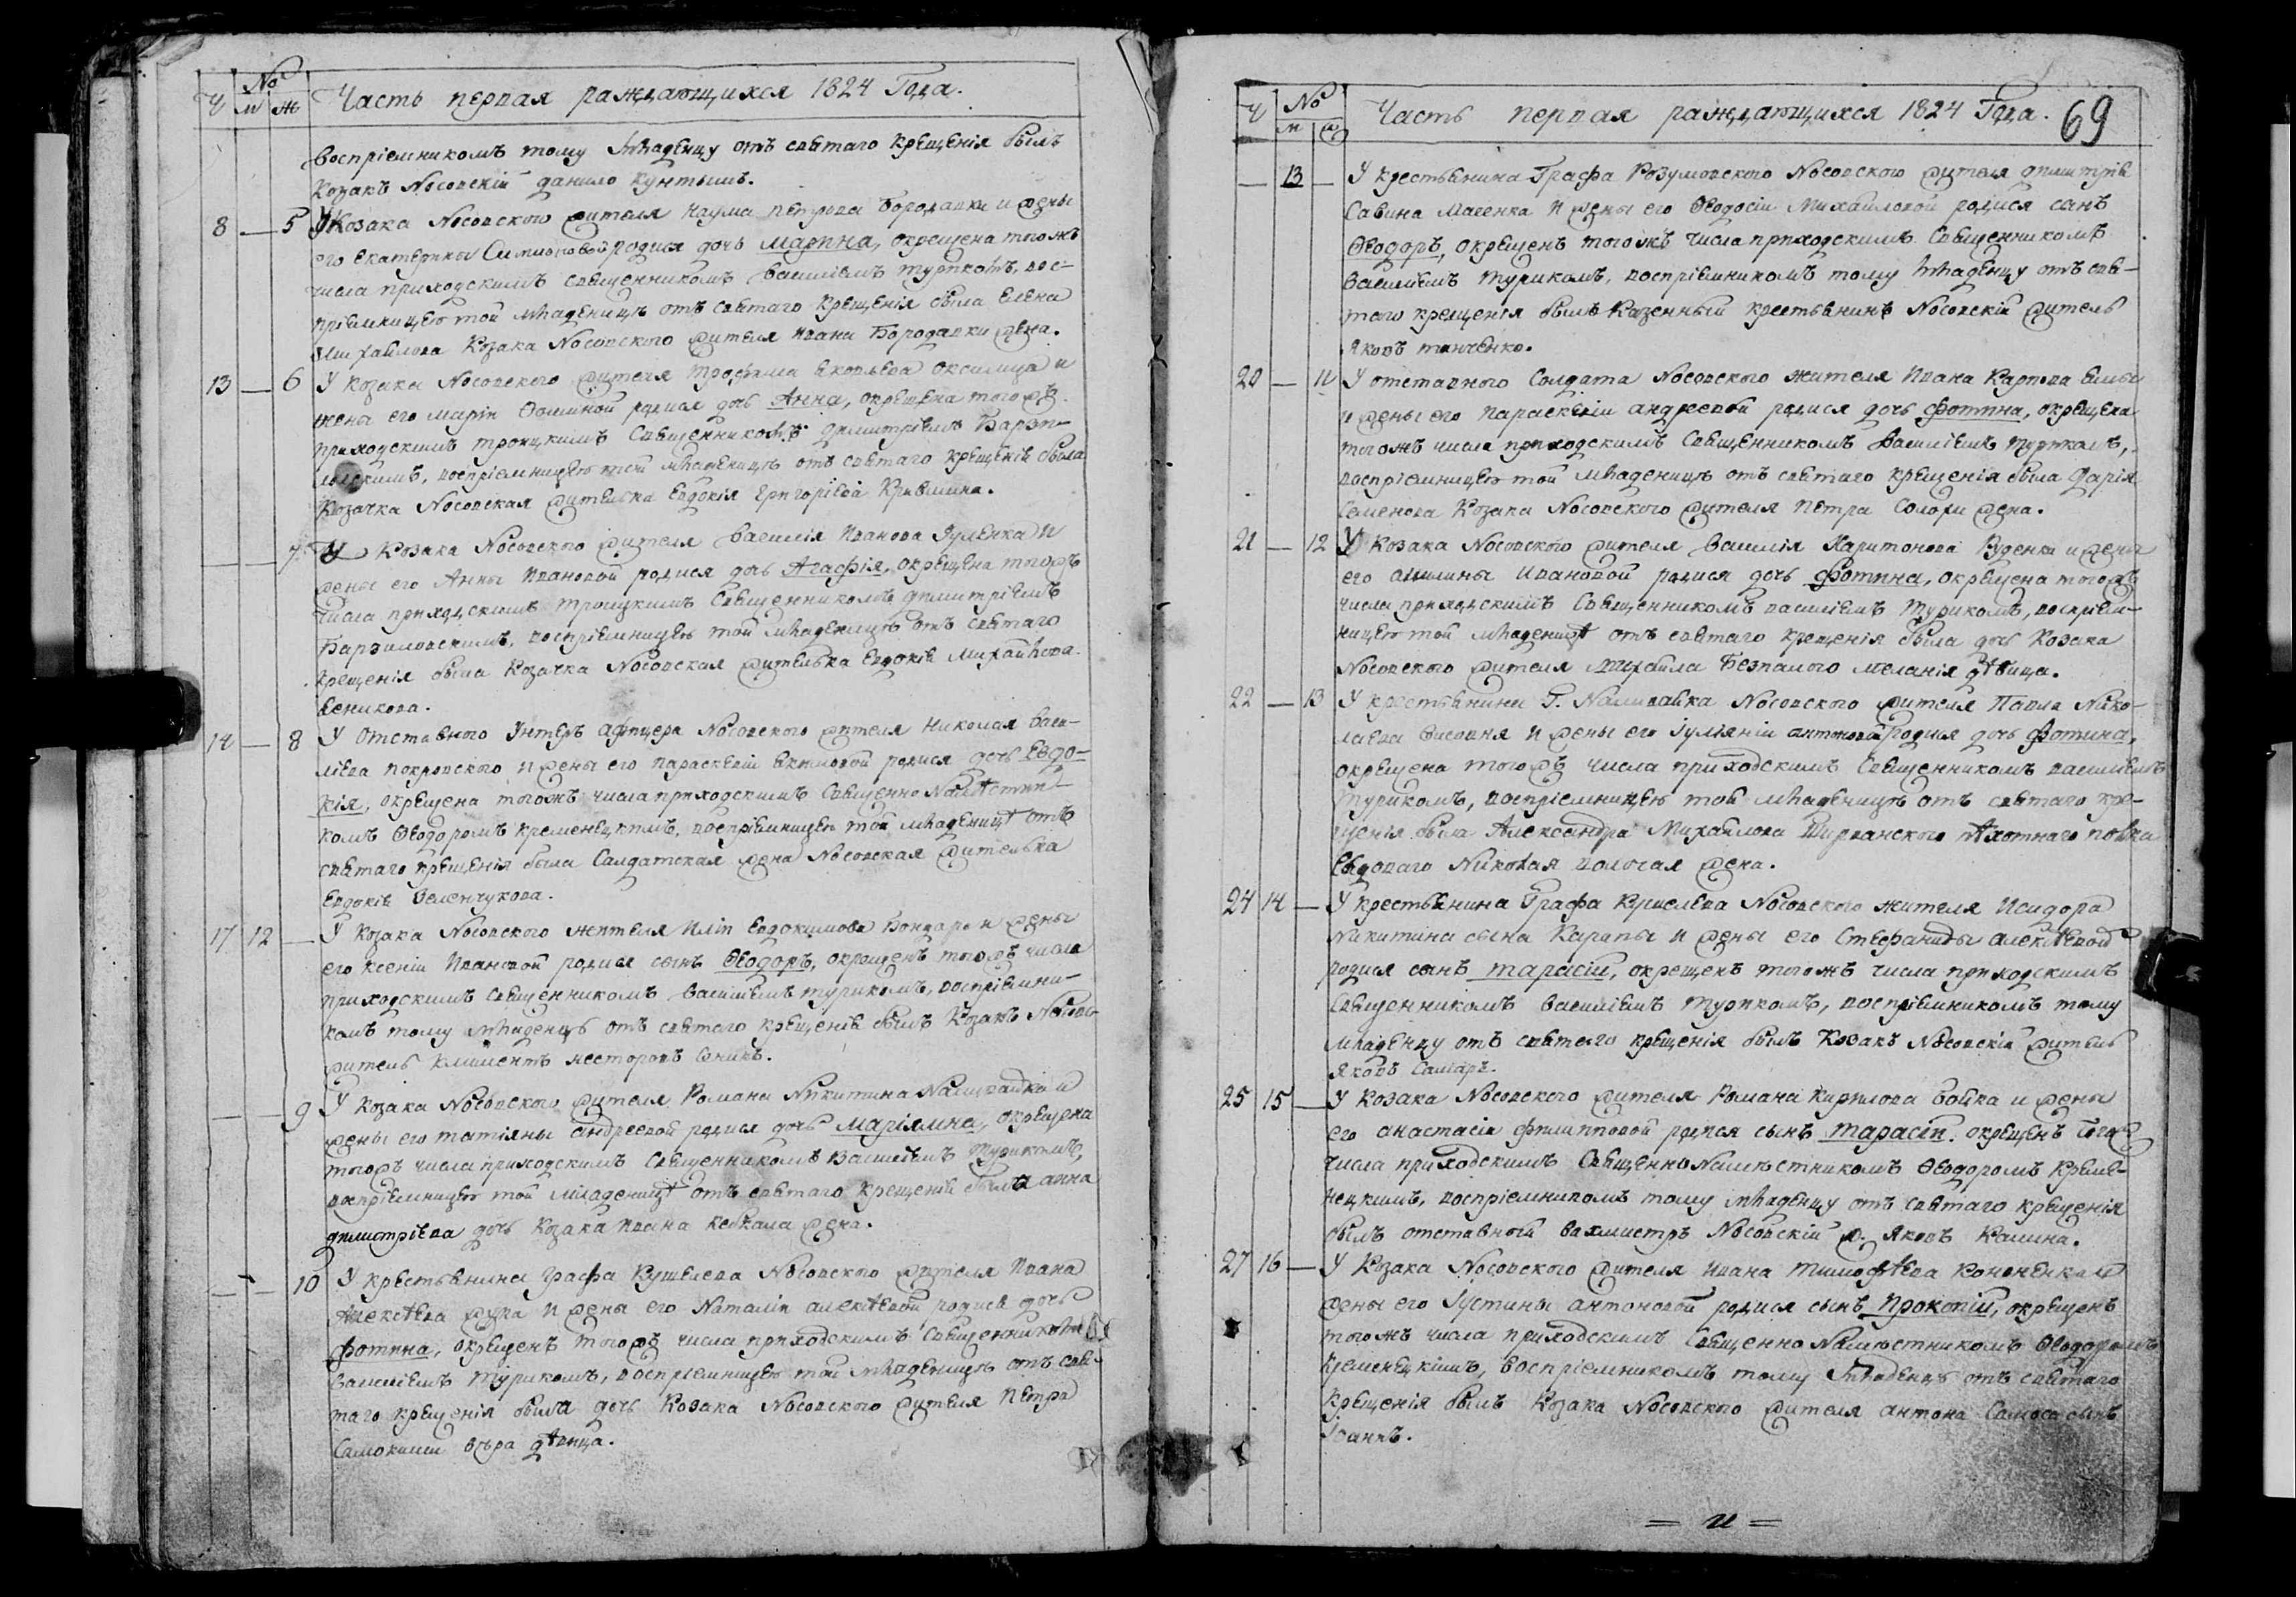 Ч № М Ж Часть первая раждающихся 1824 Года.
воспріемникомъ тому младенцу отъ святаго крещенія былъ
Козакъ Носовскій данило Кунтышъ.
8 — 5 У Козака Носовского жителя Наума петрова Бородавки и жены
его екатерины родися дочь марина, окрещена тогожъ
числа приходскимъ священникомъ василіемъ турикомъ, вос-
пріемницею той младеницѣ отъ святаго крещенія была Елена
Михайлова Козака Носовского жителя ивана Бородавки жена.
13 — 6 У козака Носовского жителя трофима и
жены его маріи Фоминой родися дочь Анна, окрещена тогожъ
приходскимъ троицкимъ священникомъ димитріемъ Барзи-
ловскимъ, воспріемницею той младеницѣ отъ святаго крещенія была
Козачка Носовская жителька Евдокія григоріева
— — 7 У Козака Носовского жителя василія иванова Гуленка и
жены его Анны ивановой родися дочь Агафія, окрещена тогожъ
числа приходскимъ троицкимъ священникомъ димитріемъ
Барзиловскимъ, воспріемницею той младеницѣ отъ святаго
крещенія была Козачка Носовская жителька Евдокія Михайлова
14 — 8 У отставного Унтеръ афицера Носовского жителя николая васи-
ліева покровского и жены его параскевіи родися дочь Евдо-
кія, окрещена тогожъ числа приходскимъ священно Намѣстни-
комъ Ѳеодоромъ кременецкимъ, воспріемницею той младеницѣ отъ
святаго крещенія была Салдатская жена Носовская жителька
Евдокія Зеленчукова.
17 12 — У козака Носовского жителя иліи Евдокимова Бондара и жены
его ксеніи ивановой родися сынъ Ѳеодоръ, окрещенъ тогожъ числа
приходскимъ священникомъ василіемъ турикомъ, воспріемни-
комъ тому младенцѣ отъ святаго крещенія былъ Козакъ
житель климентъ несторовъ
— — 9 У козака Носовского жителя Романа Никитина Наливайка и
жены его татіяны андреевой родися дочь маріямна, окрещена
тогожъ числа приходскимъ священникомъ василіемъ турикомъ,
воспріемницею той младеницѣ отъ святаго крещенія была анна
димитріева дочь козака ивана жена.
— — 10 У крестьянина графа Кушелева Носовского жителя ивана
Алексѣева и жены его Наталіи алексѣевой родися дочь
фотина, окрещенъ тогожъ числа приходскимъ священникомъ
василіемъ турикомъ, воспріемницею той младеницѣ отъ свя-
таго крещенія была дочь Козака Носовского жителя петра
Самокиши вѣра дѣвица.
Ч № М Часть первая раждающихся 1824 Года. 69
— 13 — У крестьянина Графа Розумовского Носовского жителя димитрія
Савина и жены его Ѳеодосіи Михайловой родися санъ
Ѳеодоръ, окрещенъ тогожъ числа приходскимъ священникомъ
василіемъ туриком, воспріемникомъ тому младенцу отъ свя-
таго крещенія былъ казенный крестьянинъ Носовскій житель
яковъ
20 — 11 У отставного Солдата Носовского жителя ивана Карпова
и жены его параскевіи андреевой родися дочь фотина, окрещена
тогожъ числа приходскимъ священникомъ василіемъ туриком,
воспріемницею той младеницѣ отъ святаго крещенія была дарія
Семенова Козака Носовского жителя петра жена.
21 — 12 У Козака Носовского жителя василія Харитонова Руденка и жены
его ивановой родися дочь фотина, окрещена тогожъ
числа приходскимъ священникомъ василіемъ туриком, воспріем-
ницею той младеницѣ отъ святаго крещенія была дочь козака
Носовского жителя михайла Безпалого меланія дѣвица.
22 — 13 У крестьянина Г. Наливайка Носовского жителя Павла Нико-
лаева и жены его Іуліяніи антоновой родися дочь фотина,
окрещена тогожъ числа приходскимъ священникомъ василіемъ
туриком, воспріемницею той младеницѣ отъ святаго кре-
щенія была Александра Михайлова Ширванского пѣхотнаго полка
Рядоваго Николая жена.
24 14 — У крестьянина Графа Кушелева Носовского жителя Исидора
Никитина сына и жены его Стефаниды алексѣевой
родися сынъ тарасій, окрещенъ тогожъ числа приходскимъ
священникомъ василіемъ туриком, воспріемникомъ тому
младенцу отъ святаго крещенія былъ Козакъ Носовскій житель
яковъ
25 15 — У козака Носовского жителя Романа Кирилова бойка и жены
его анастасіи филипповой родися сынъ тарасій, окрещенъ того
числа приходскимъ священно Намѣстникомъ Ѳеодоромъ Креме-
нецкимъ, воспріемникомъ тому младенцу отъ святаго крещенія
былъ отставный вахмистръ Носовскій ж. яковъ Калина.
27 16 — У козака Носовского жителя ивана тимофѣева Кононенка и
жены его Іустины антоновой родися сынъ Прокопій, окрещенъ
тогожъ числа приходскимъ священно Намѣстникомъ Ѳеодоромъ
кременецкимъ, воспріемникомъ тому младенцѣ отъ святаго
крещенія былъ козака Носовского жителя антона сынъ
Іоаннъ.